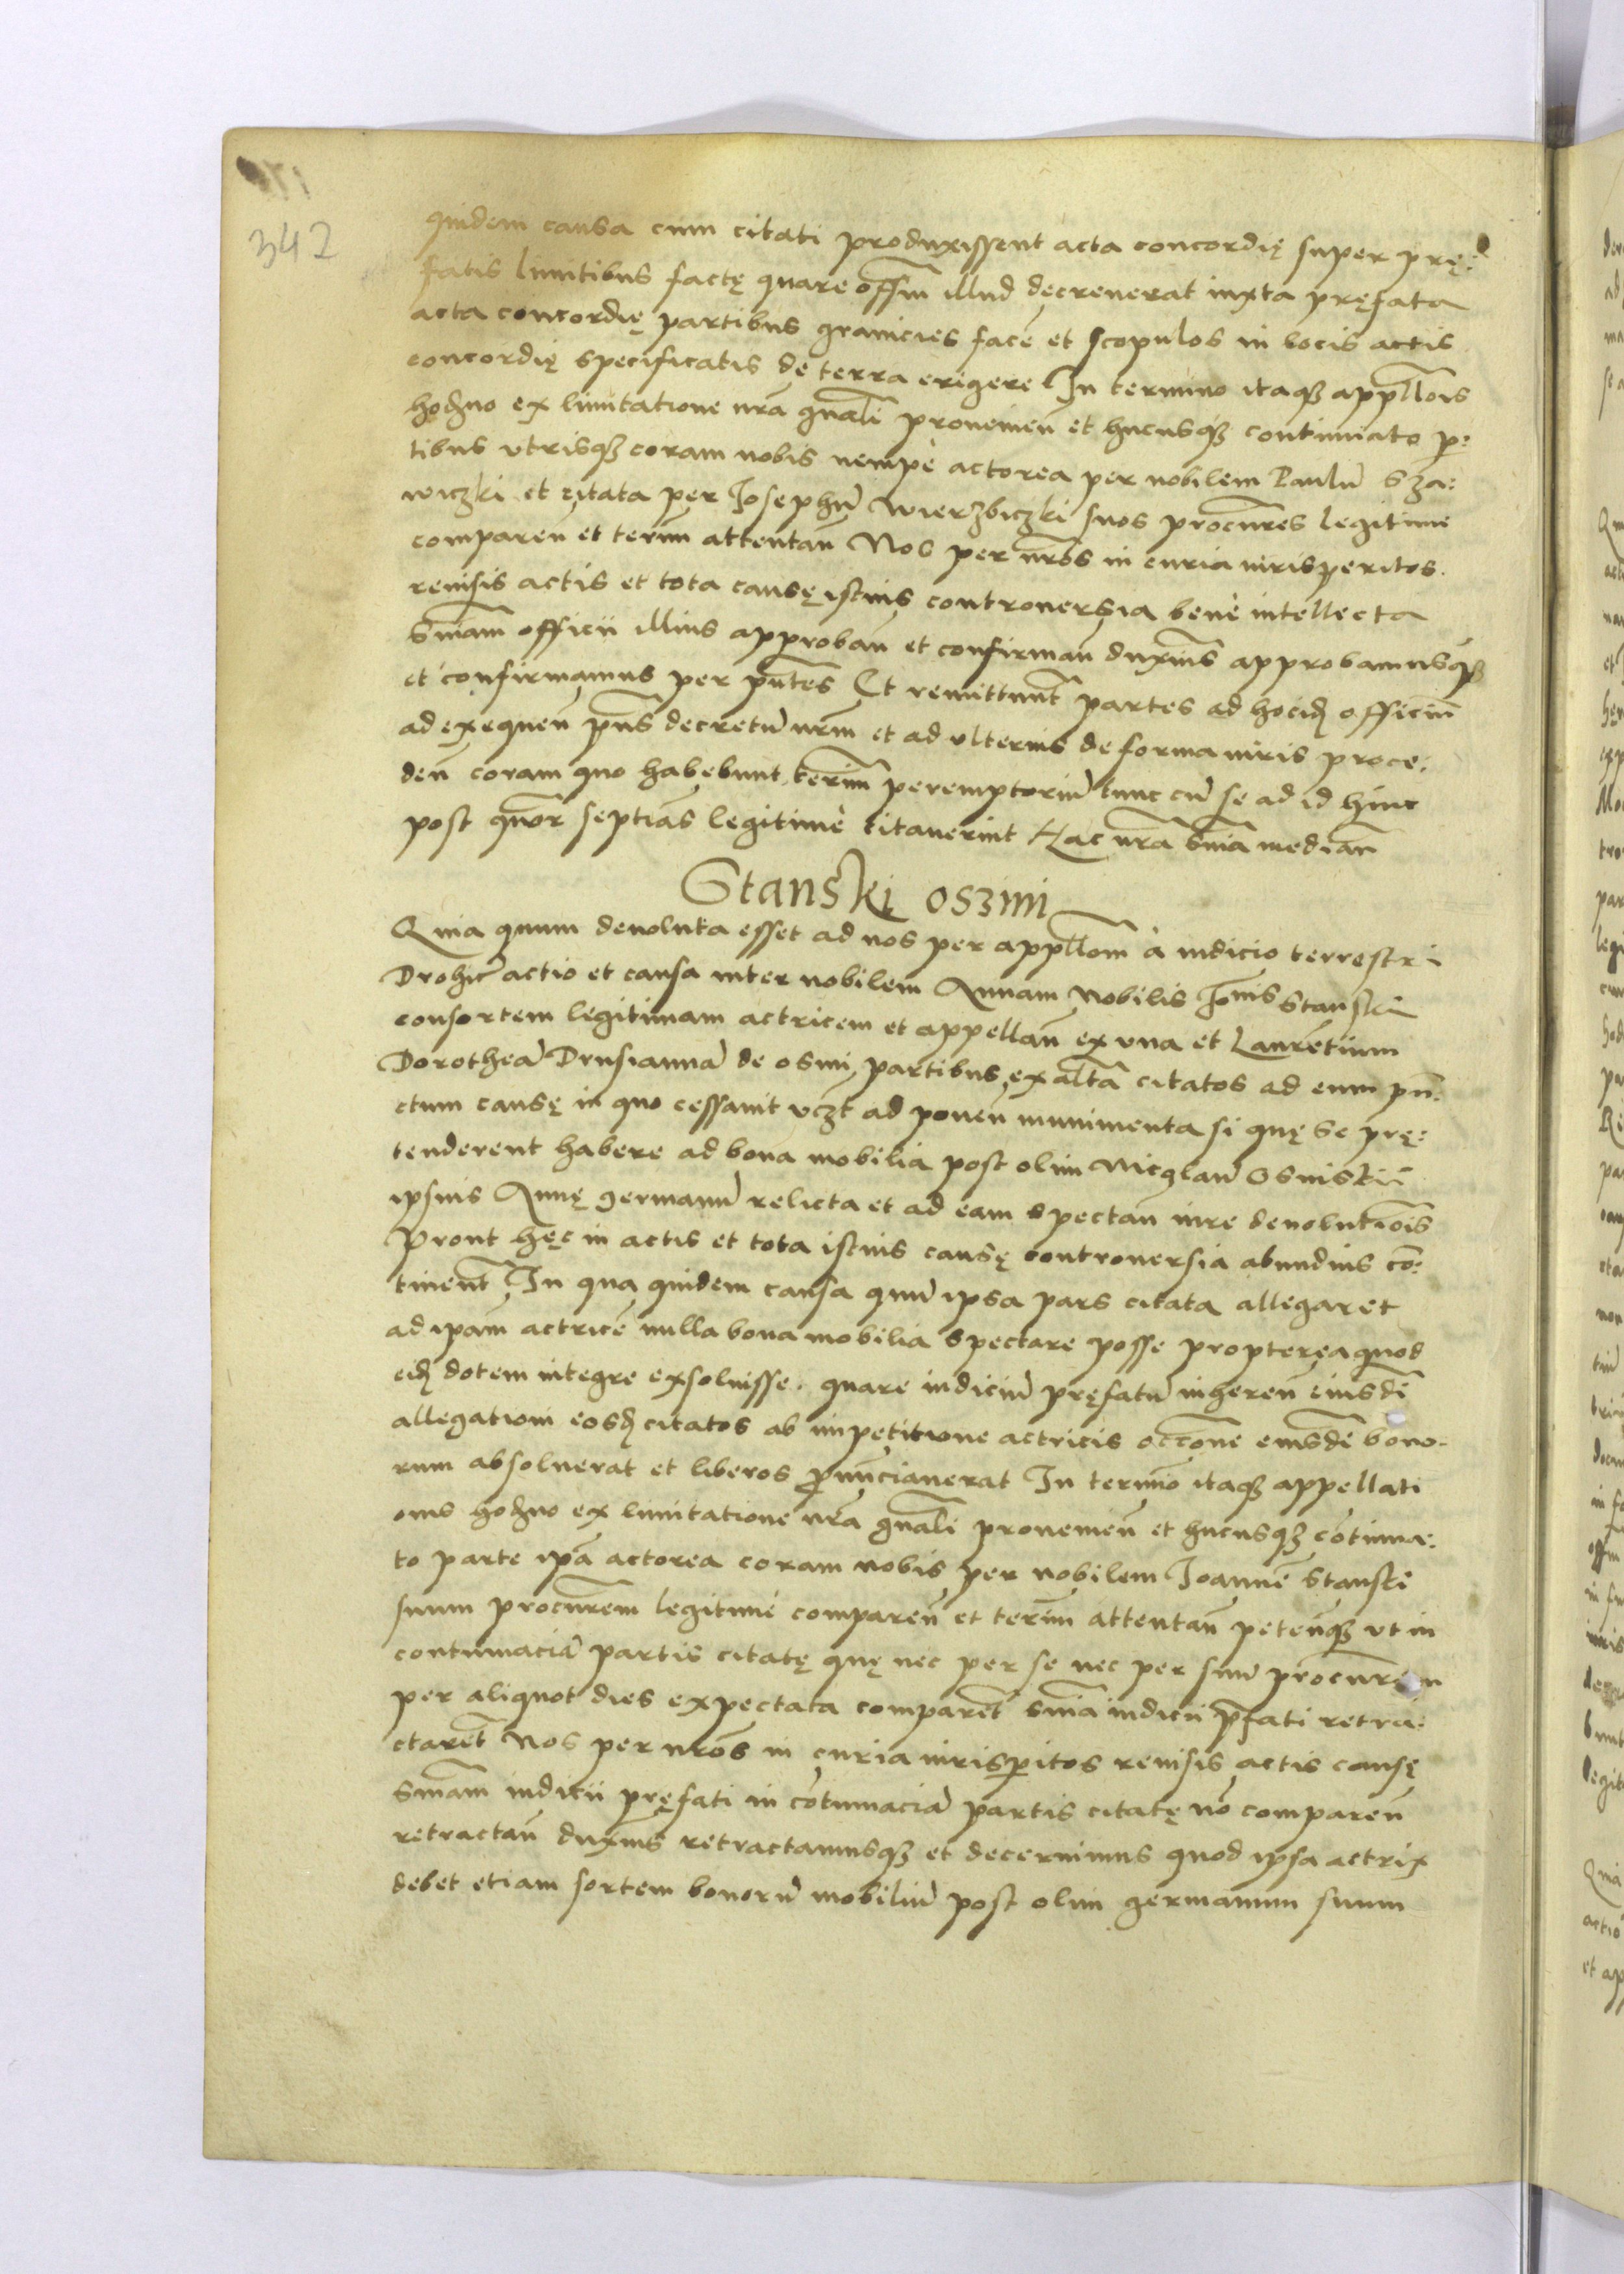 342
quidem causa cum citati produxissent acta concordię super prę:
fatis limitibus factę quare offm̄ illud decreuerat iuxta pręfata
acta concordię partibus granicies facē et scopulos in locis actis
concordię specificatis de terra erigere In termino itaq₃ appłłois
hodiᷓno ex limitatione nrā gnāli prouenieñ et hucusq₃ continuato p:
tibus vtrisq₃ coram nobis nempe actorea per nobilem Paulū Sza:
wiczki et citata per Josephū Wierzbiczki suos procures̄ legitime
compareñ et term̄ attentañ Nos per nrōs in curia iurisperitos
reuisis actis et tota causę istius controuersia bene intellecta
sniam̄ officii illius approbañ et confirmañ duxim̄s approbamusq₃
et confirmamus per pn̄tes Et remittunt̄ partes ad hocid₃ officiū
ad exequeñ pn̄s decretū nrm̄ et ad vlterius de forma iuris proce:
deñ coram quo habebunt term̄ peremptoriū tunc cū se ad id hinc
post quor̄ septiās legitime citauerint Hac nrā sniā mediañ
Stanski oszmi
Quia quum deuoluta esset ad nos per appłłom̄ à iudicio terrestri
Drohic̄ actio et causa inter nobilem Annam Nobilis Joīnis Stanski
consortem legitimam actricem et appellañ ex vna et Laurētium
Dorotheā Drusiannā de osmi partibus ex altā citatos ad eum pū:
ctum causę in quo cessauit vcz̄t ad poneñ munimenta si quę se prę:
tenderent habere ad bona mobilia post olim Nicolaū Osmiskii
ipsius Annę germanū relicta et ad eam spectañ iure deuolutiōis
Prout hęc in actis et tota istius causę controuersia abundius cō:
tinent̄ In qua quidem causa quū ipsa pars citata allegaret
ad ipam̄ actricē nulla bona mobilia spectare posse propterea quod
eid₃ dotem integre exsoluisse. quare iudiciū pręfatū inhereñ eiusdē
allegationi eosd₃ citatos ab impetitione actricis occone̅ eiusdē bono-
rum absoluerat et liberos pnūnciauerat In termīno itaq₃ appellati
onis hodᷓno ex limitatione nrā gnāli prouenieñ et hucusq₃ cōtinua:
to parte ipā actorea coram nobis per nobilem Joannē Stanski
suum procurem̄ legitime compareñ et term̄ attentañ peteñq₃ vt in
contumaciā partis citatę quę nec per se nec per suū procurem̄
per aliquot dies expectata comparet̄ sniā iudicii p̄fati retra:
ctaret̄ Nos per nrōs in curia iurisp̄itos reuisis actis causę
sniam̄ iudicii pręfati in cōtumaciā partis citatę nō compareñ
retractañ duxim̄s retractamusq₃ et decernimus quod ipsa actrix
debet etiam sortem bonorū mobiliū post olim germanum suum